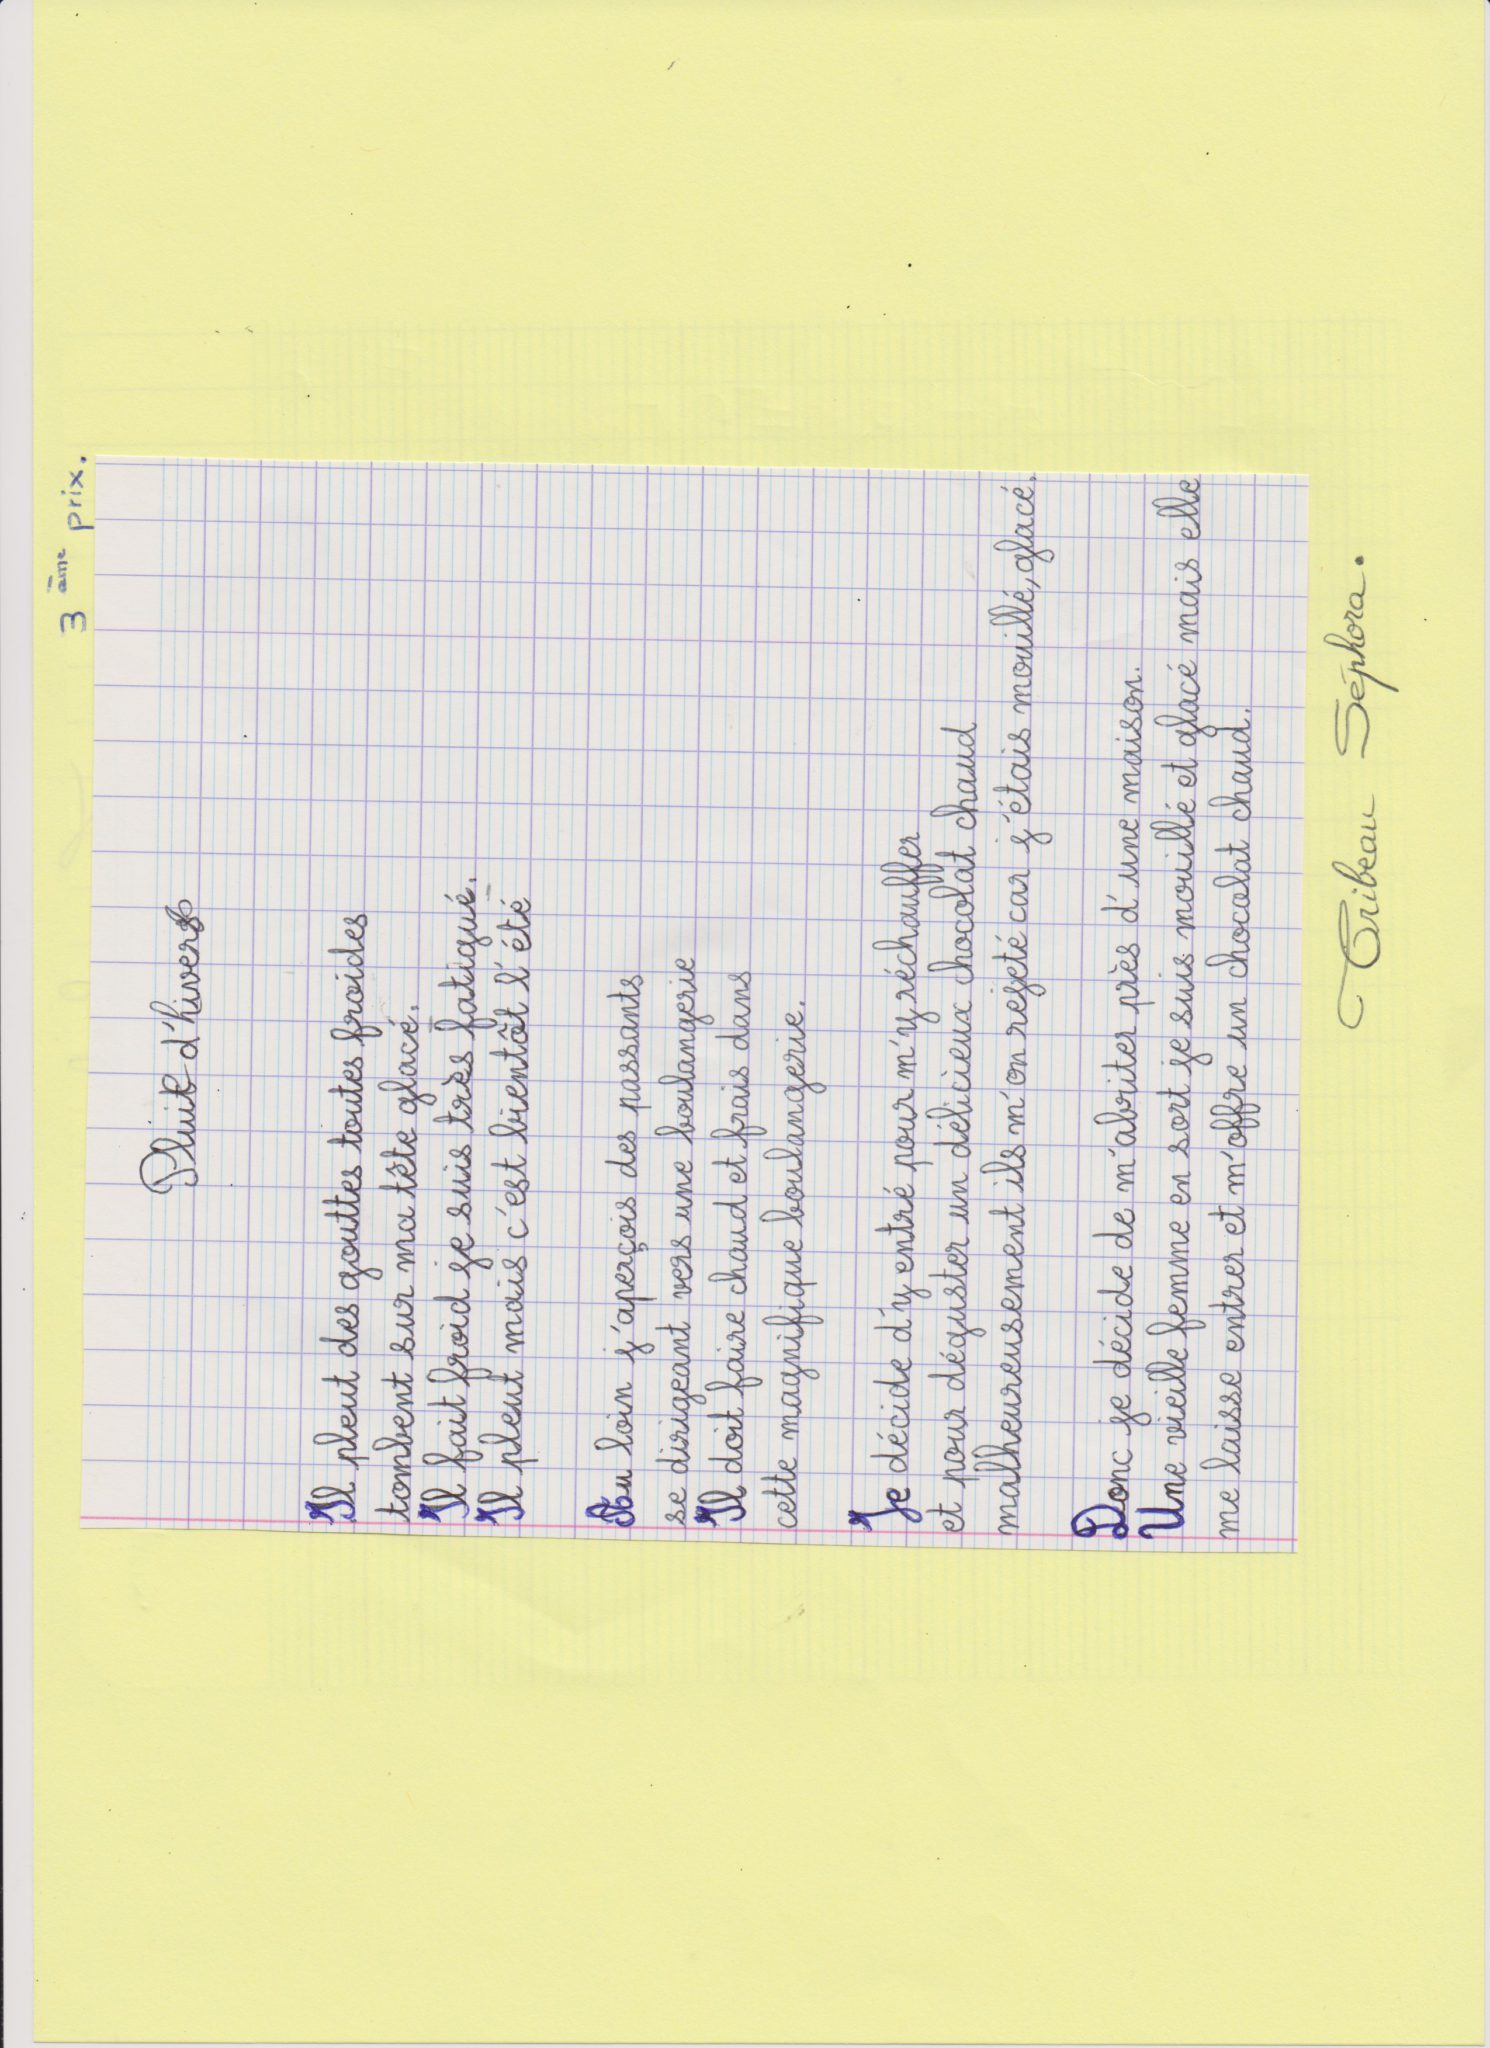 3ème prix.
Pluie d'hivers
Il pleut des gouttes toutes froides
tombent sur ma tête glacé.
Il fait froid je suis très fatigué.
Il pleut mais c'est bientôt l'été
Au loin j'aperçois des passants
se dirigeant vers une boulangerie
Il doit faire chaud et frais dans
cette magnifique boulangerie.
Je décide d'y entré pour m'y réchauffer
et pour déguster un délicieux chocolat chaud
malheureusement ils m'on rejeté car j'étais mouillé, glacé.
Donc je décide de m'abriter près d'une maison.
Une vieille femme en sort je suis mouillé et glacé mais elle
me laisse entrer et m'offre un chocolat chaud.
Tribeau Séphora.